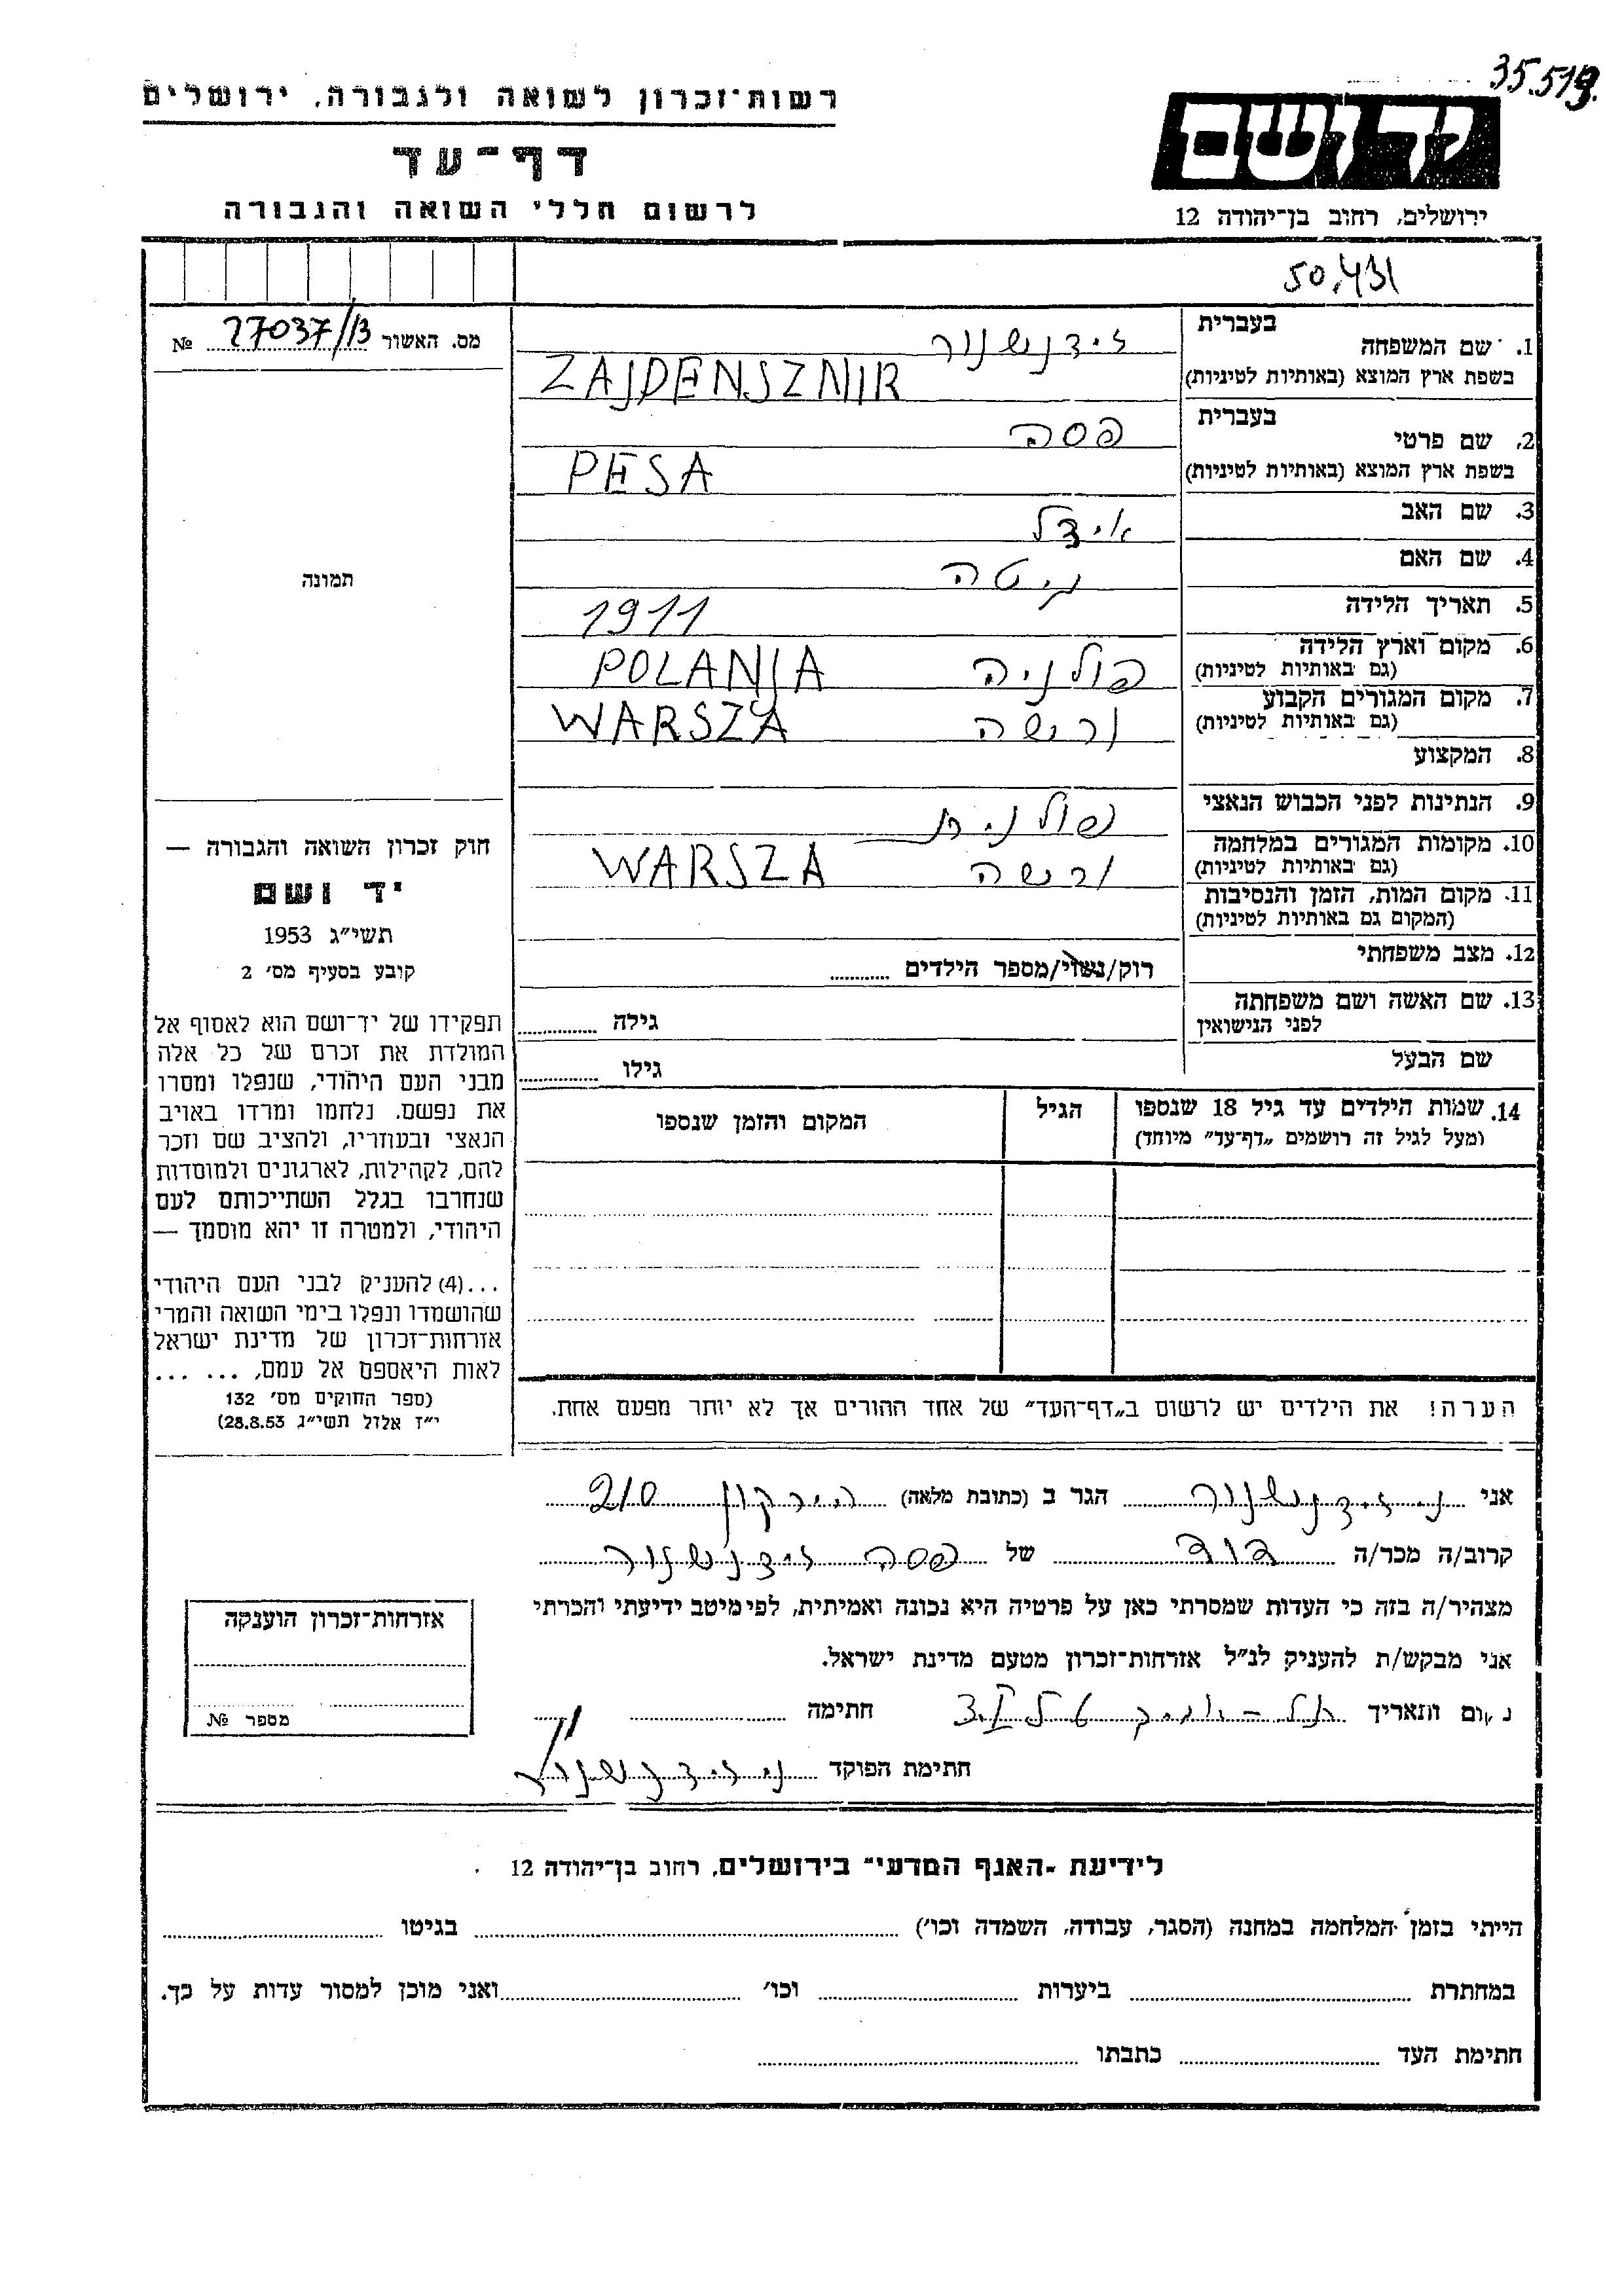 35.519
רשות־זכרון לשואה ולגבורה, ירושלים
יד ושם
דף־עד
לרשום חללי השואה והגבורה
ירושלים, רחוב בן־יהודה 12
50,431
מס. האשור 27037/13 №
תמונה
בעברית
1. שם המשפחה זידנשנור
בשפת ארץ המוצא (באותיות לטיניות) ZAJDENSZNIR
בעברית
2. שם פרטי פסה
בשפת ארץ המוצא (באותיות לטיניות) PESA
3. שם האב אידל
4. שם האם גיטה
5. תאריך הלידה 1911
6. מקום וארץ הלידה פולניה POLANJA
(גם באותיות לטיניות)
7. מקום המגורים הקבוע ורשה WARSZA
(גם באותיות לטיניות)
8. המקצוע
9. הנתינות לפני הכבוש הנאצי פולנית
10. מקומות המגורים במלחמה ורשה WARSZA
(גם באותיות לטיניות)
11. מקום המות, הזמן והנסיבות
(המקום גם באותיות לטיניות)
12. מצב משפחתי רוק/נשוי/מספר הילדים
13. שם האשה ושם משפחתה גילה
לפני הנישואין
שם הבעל גילו
14. שמות הילדים עד גיל 18 שנספו הגיל המקום והזמן שנספו
(מעל לגיל זה רושמים „דף־עד” מיוחד)
חוק זכרון השואה והגבורה —
יד ושם
תשי״ג 1953
קובע בסעיף מס׳ 2
תפקידו של יד־ושם הוא לאסוף אל
המולדת את זכרם של כל אלה
מבני העם היהודי, שנפלו ומסרו
את נפשם, נלחמו ומרדו באויב
הנאצי ובעוזריו, ולהציב שם וזכר
להם, לקהילות, לארגונים ולמוסדות
שנחרבו בגלל השתייכותם לעם
היהודי, ולמטרה זו יהא מוסמך —
...(4) להעניק לבני העם היהודי
שהושמדו ונפלו בימי השואה והמרי
אזרחות־זכרון של מדינת ישראל
לאות היאספם אל עמם, ... ...
(ספר החוקים מס׳ 132
י״ז אלול תשי״ג 28.8.53)
הערה! את הילדים יש לרשום ב„דף־העד” של אחד ההורים אך לא יותר מפעם אחת.
אני נ. זידנשנור הגר ב (כתובת מלאה) הירקון 210
קרוב/ה מכר/ה דוד של פסה זידנשנור
מצהיר/ה בזה כי העדות שמסרתי כאן על פרטיה היא נכונה ואמיתית, לפי מיטב ידיעתי והכרתי
אני מבקש/ת להעניק לנ״ל אזרחות־זכרון מטעם מדינת ישראל.
מקום ותאריך תל־אביב חתימה
חתימת הפוקד נ. זידנשנור
אזרחות־זכרון הוענקה
מספר №
לידיעת ״האגף המדעי״ בירושלים, רחוב בן־יהודה 12
הייתי בזמן המלחמה במחנה (הסגר, עבודה, השמדה וכו׳) בגיטו
במחתרת ביערות וכו׳ ואני מוכן למסור עדות על כך.
חתימת העד כתבתו